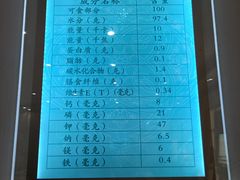 成分名称 含量
可食部分 100
水分（克） 97.4
能量（千卡） 10
能量（千焦） 12
蛋白质（克） 0.9
脂肪（克） 0.1
碳水化合物（克） 1.4
膳食纤维（克） 0.1
维生素E（T）（毫克） 0.34
钙（毫克） 8
磷（毫克） 21
钾（毫克） 47
钠（毫克） 6.5
镁（毫克） 6
铁（毫克） 0.4